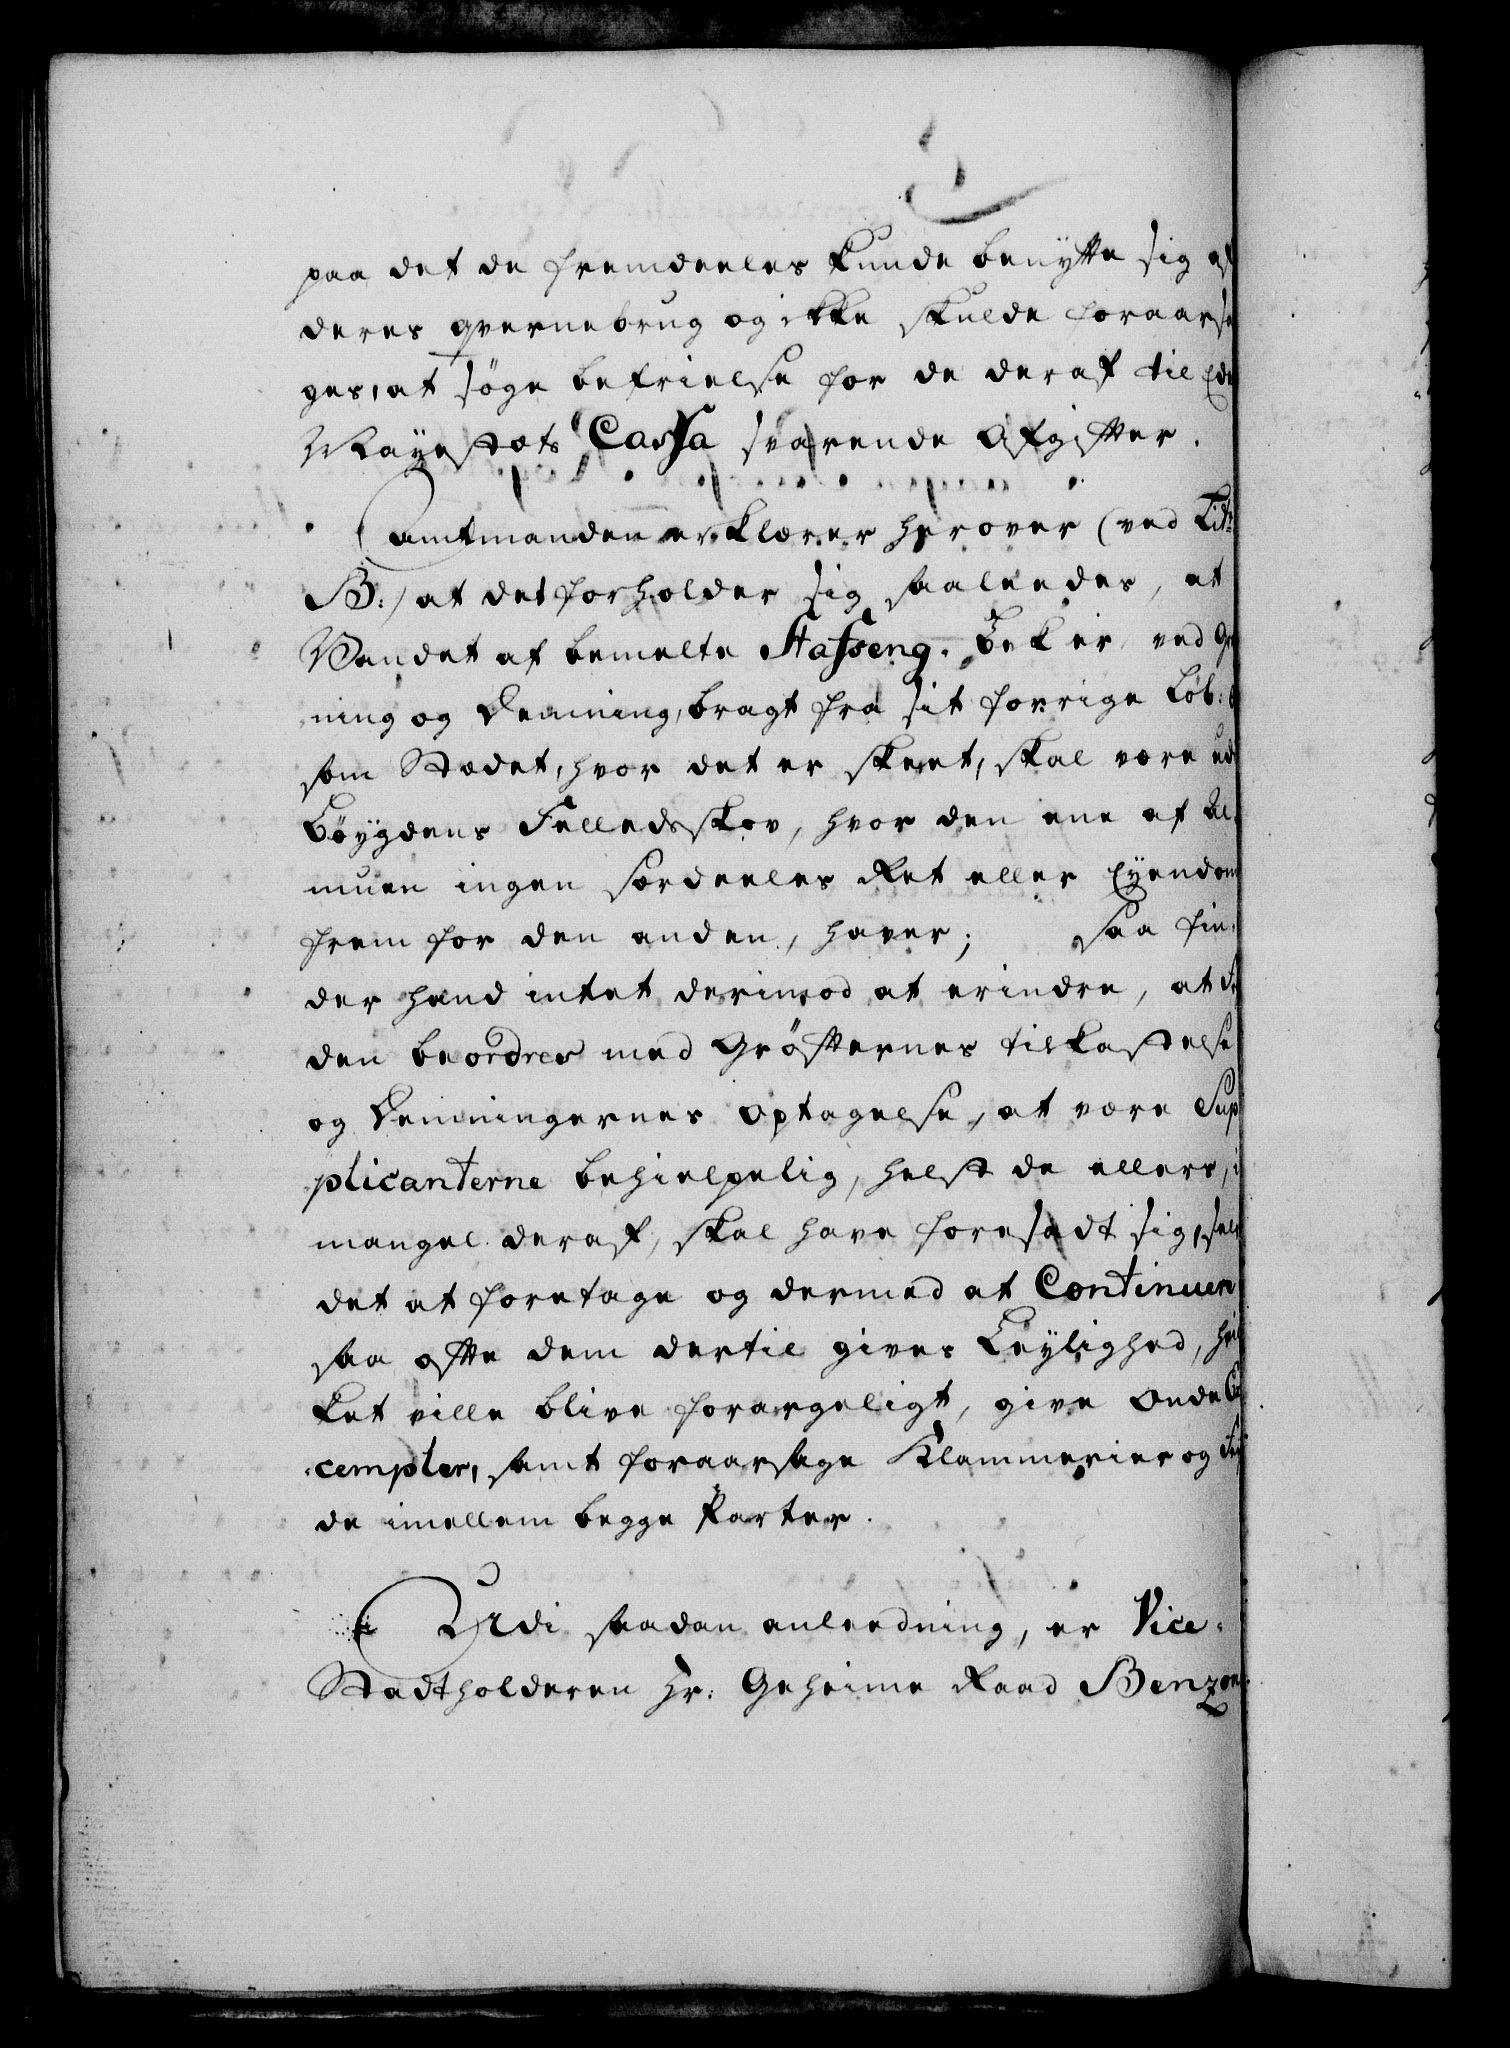 paa det de fremdeeles kunde benytte sig af
deres qvernebrug og ikke skulde foraarsa
ges, at søge befrielse for de deraf til
Mayestæts Cassa svarende Afgifter.
Amtmanden erklærer herover (ved Litr:
B:) at det forholder sig saaleedes, at
Vandet af bemelte Stafseng-Bek er, ved
ning og Demning, bragt fra sit forrige Løb:
som Stædet, hvor det er skeet, skal være udi
Bøygdens Felledsskov, hvor den ene af Al-
muen ingen særdeeles Ret eller Eyendom
frem for den anden, haver; saa fin-
der hand intet derimod at erindre, at
den beordres med Grøfternes tilkastelse
og Demningernes optagelse, at være Sup
plicanterne behielpelig, helst de ellers, i
mangel deraf, skal have foresadt sig, selv
det at foretage og dermed at Continuere
saa ofte dem dertil gives Leylighed, hvil
ket ville blive forargeligt, give onde Ex
cempler, samt foraarsage Klammerier og
de imellem begge Parter.
Udi saadan anleedning, er Vice-
Stadtholderen Hr: Geheime Raad Benzon